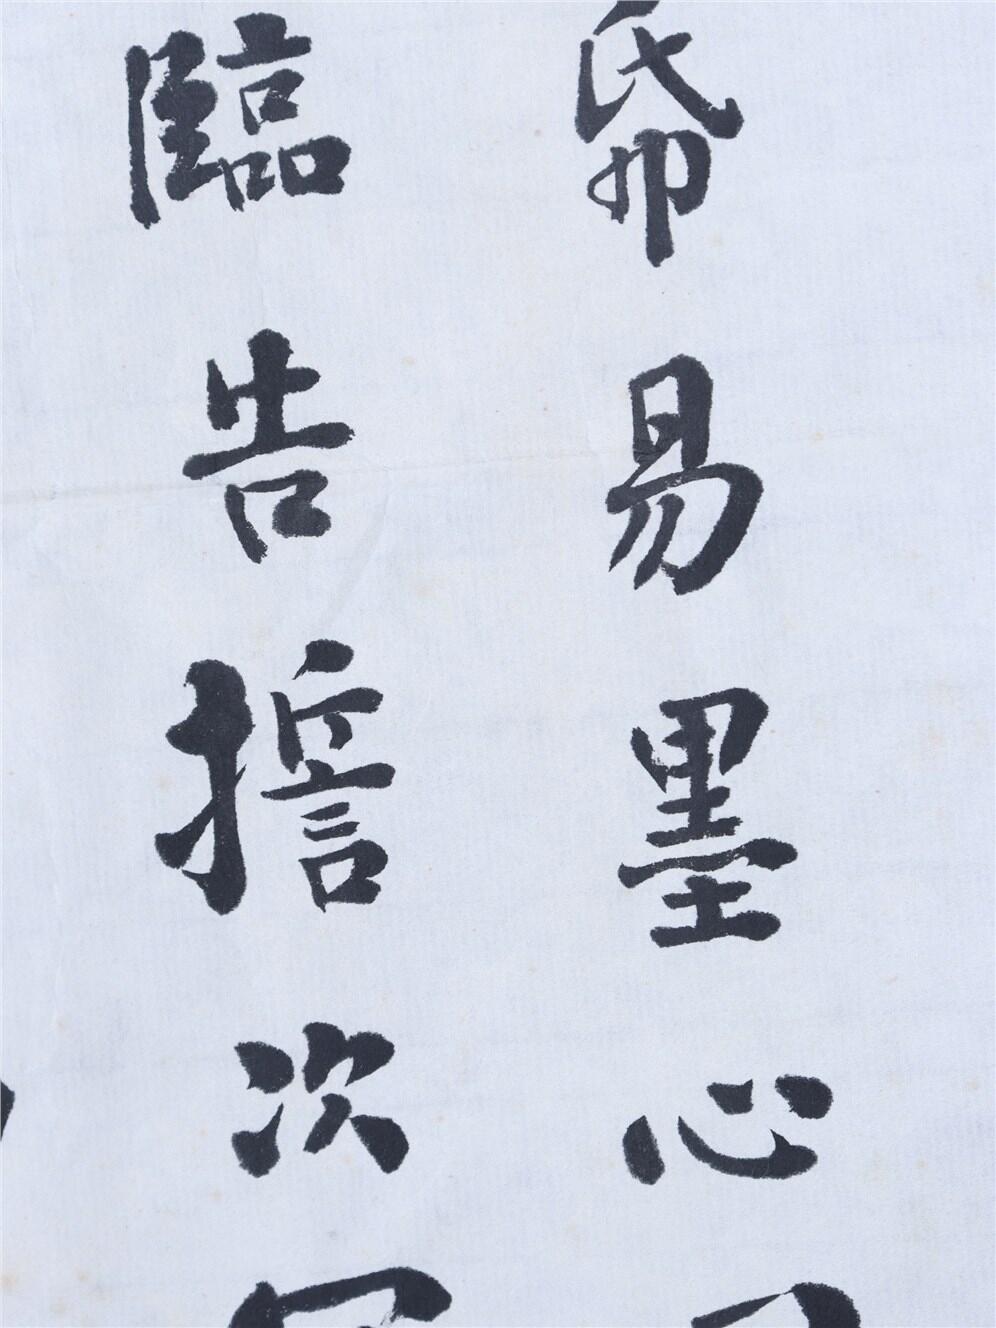 帋易墨心
臨告次